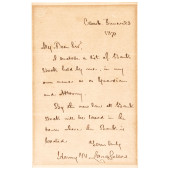 My Dear Sir
I enclose a list of Bank
Stock held by me in my
own name or as Guardian
and Attorney.
By the new law all Bank
Stock will be taxed in the
town where the Bank is
located.
Yours truly
Henry W. Longfellow